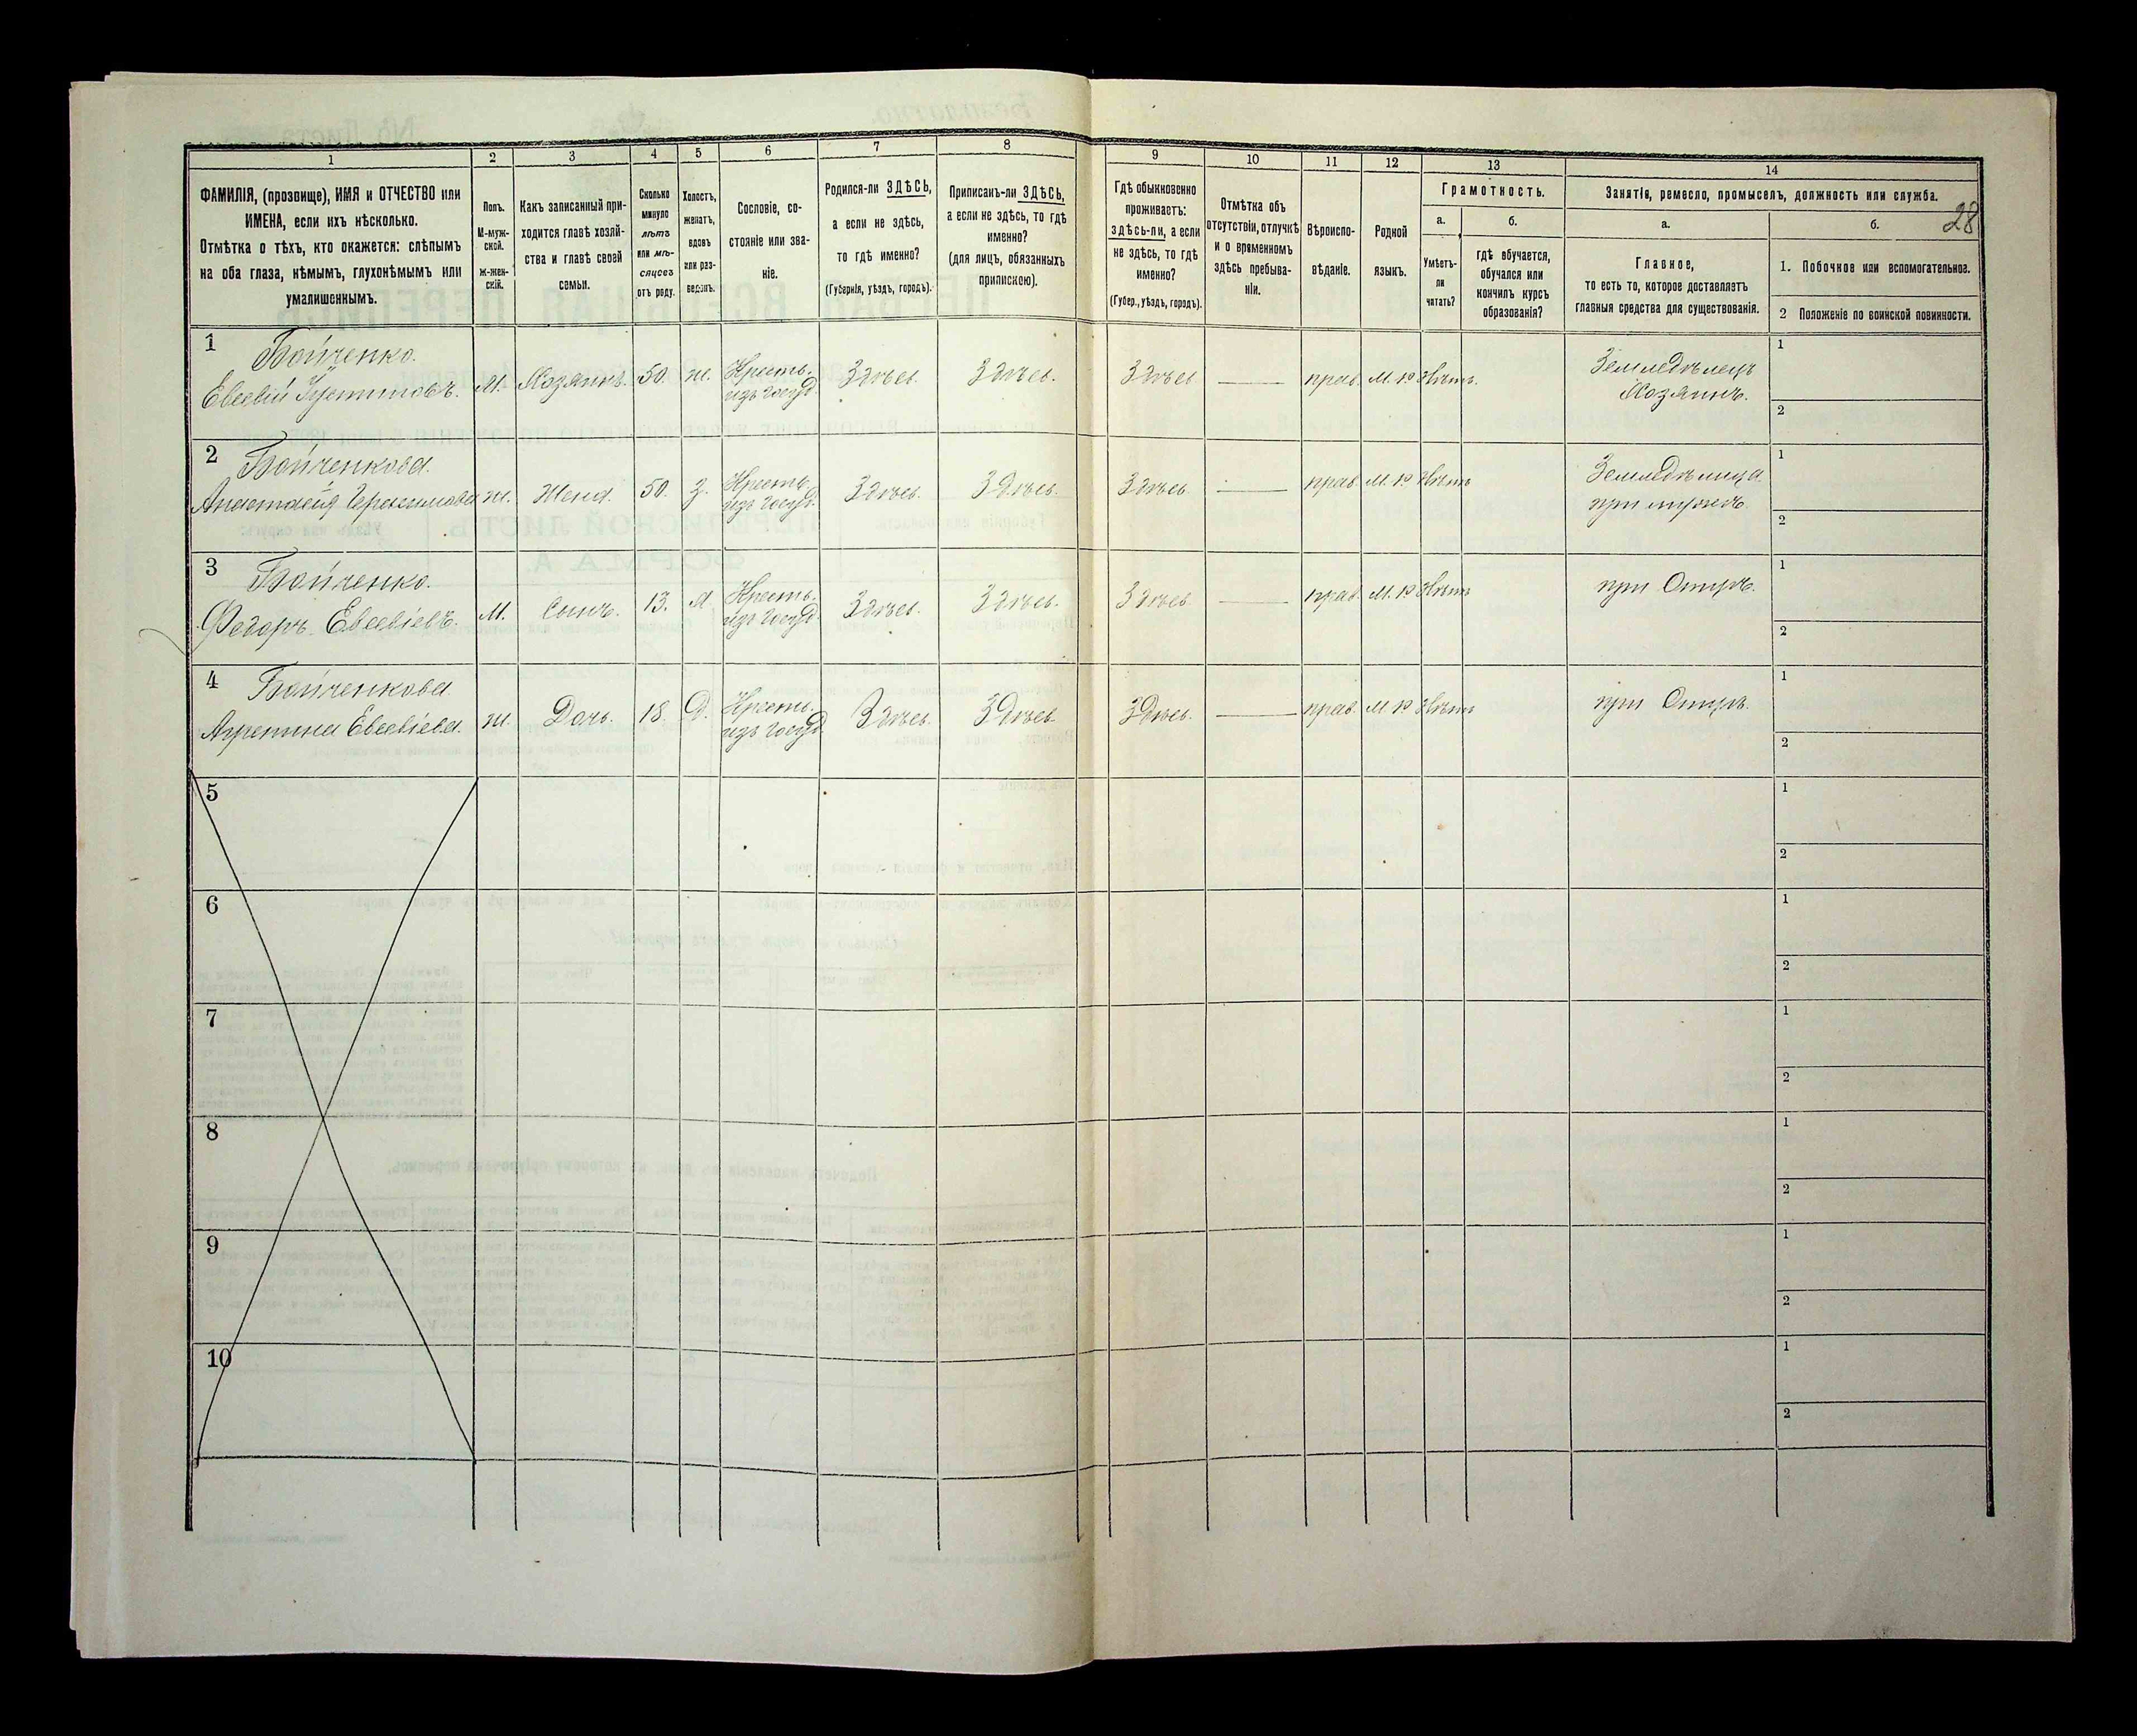 28
1
2
3
4
5
6
7
8
9
10
11
12
13
14
ФАМИЛІЯ, (прозвище), ИМЯ и ОТЧЕСТВО или
ИМЕНА, если ихъ нѣсколько.
Отмѣтка о тѣхъ, кто окажется: слѣпымъ
на оба глаза, нѣмымъ, глухонѣмымъ или
умалишеннымъ.
Полъ.
М-муж-
ской.
ж-жен-
скій.
Какъ записанный при-
ходится главѣ хозяй-
ства и главѣ своей
семьи.
Сколько
минуло
лѣтъ
или мѣ-
сяцевъ
отъ роду.
Холостъ,
женатъ,
вдовъ
или раз-
веденъ.
Сословіе, со-
стояніе или зва-
ніе.
Родился-ли ЗДѢСЬ,
а если не здѣсь,
то гдѣ именно?
(Губернія, уѣздъ, городъ).
Приписанъ-ли ЗДѢСЬ,
а если не здѣсь, то гдѣ
именно?
(для лицъ, обязанныхъ
припискою).
Гдѣ обыкновенно
проживаетъ:
здѣсь-ли, а если
не здѣсь, то гдѣ
именно?
(Губер., уѣздъ, городъ).
Отмѣтка объ
отсутствіи, отлучкѣ
и о временномъ
здѣсь пребыва-
ніи.
Вѣроиспо-
вѣданіе.
Родной
языкъ.
Грамотность.
а.
Умѣетъ-
ли
читать?
б.
гдѣ обучается,
обучался или
кончилъ курсъ
образованія?
Занятія, ремесло, промыселъ, должность или служба.
а.
Главное,
то есть то, которое доставляетъ
главныя средства для существованія.
б.
1. Побочное или вспомогательное.
2 Положеніе по воинской повинности.
1 Бойченко.
Евсевій Устиновъ. М. Хозяинъ. 50. ж. Кресть. Здѣсь. Здѣсь. Здѣсь прав. М. р Нѣтъ. Земледѣлецъ 1
изъ госуд. Хозяинъ. 2
2 Бойченкова.
Анастасія Герасимова ж. Жена. 50. З. Кресть. Здѣсь. Здѣсь. Здѣсь прав. М. р Нѣтъ Земледѣлица 1
изъ госуд. при мужѣ. 2
3 Бойченко.
Федоръ Евсевіевъ. М. Сынъ. 13. Кресть. Здѣсь. Здѣсь. Здѣсь прав. М. р Нѣтъ при Отцѣ. 1
изъ госуд. 2
4 Бойченкова.
Агрепина Евсевіева. ж. Дочь. 18. Д. Кресть. Здѣсь. Здѣсь Здѣсь. прав. М р Нѣтъ при Отцѣ. 1
изъ госуд 2
5 1
2
6 1
2
7 1
2
8 1
2
9 1
2
10 1
2